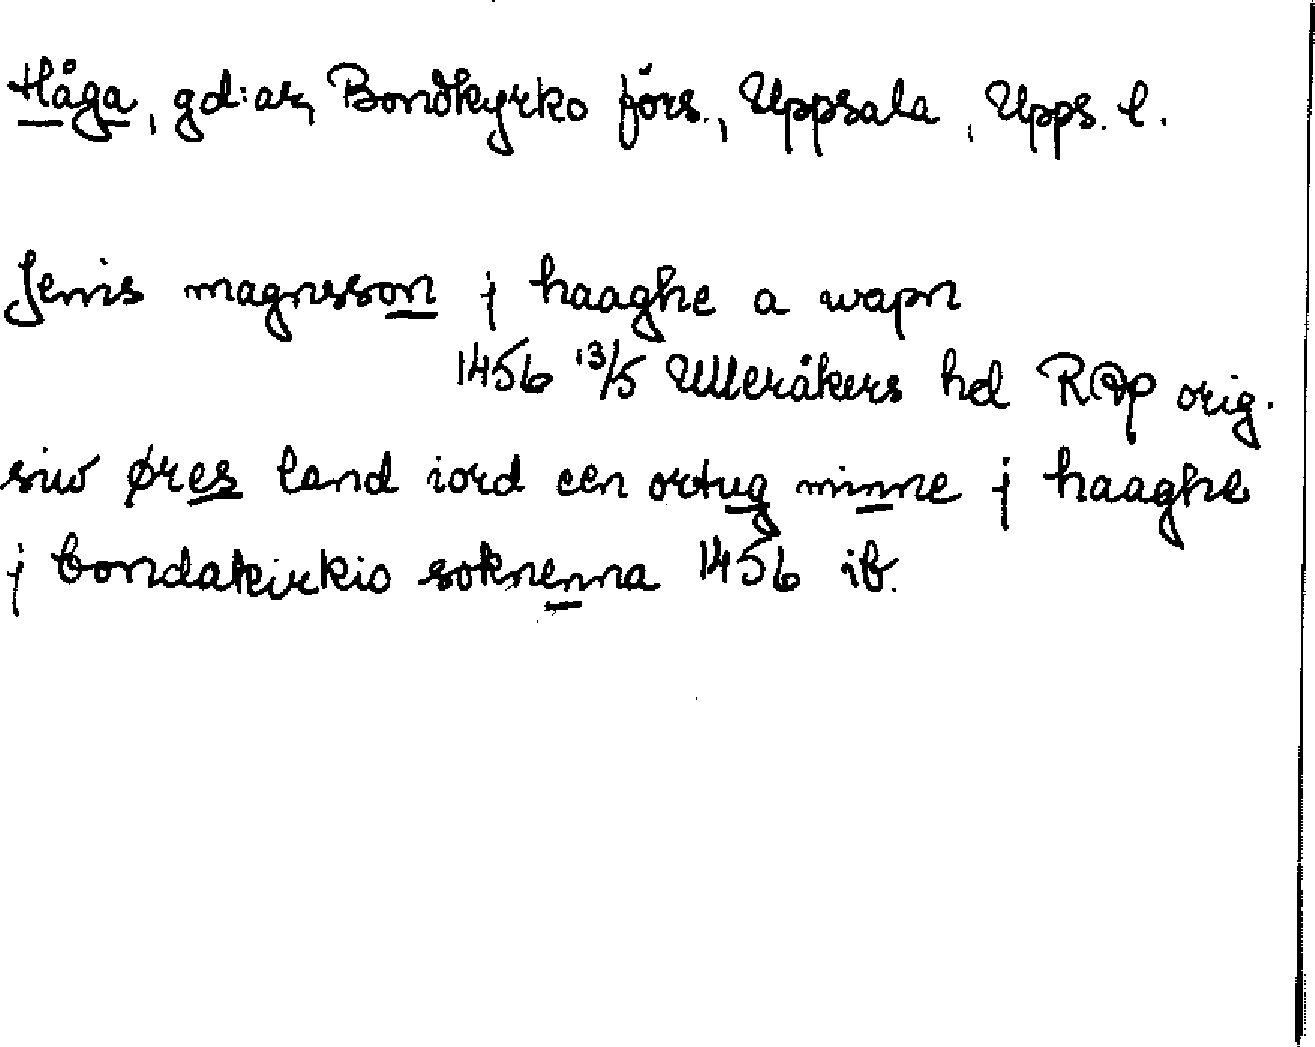 Håga, gd:ar, Bondkyrko förs., Uppsala, Upps. l.
Jenis magnsson j haaghe a wapn
1456 13/5 Ulleråkers hd RAp orig.
siw øres land iord een ortug minne j haaghe
j bondakirkio soknenna 1456 ib.